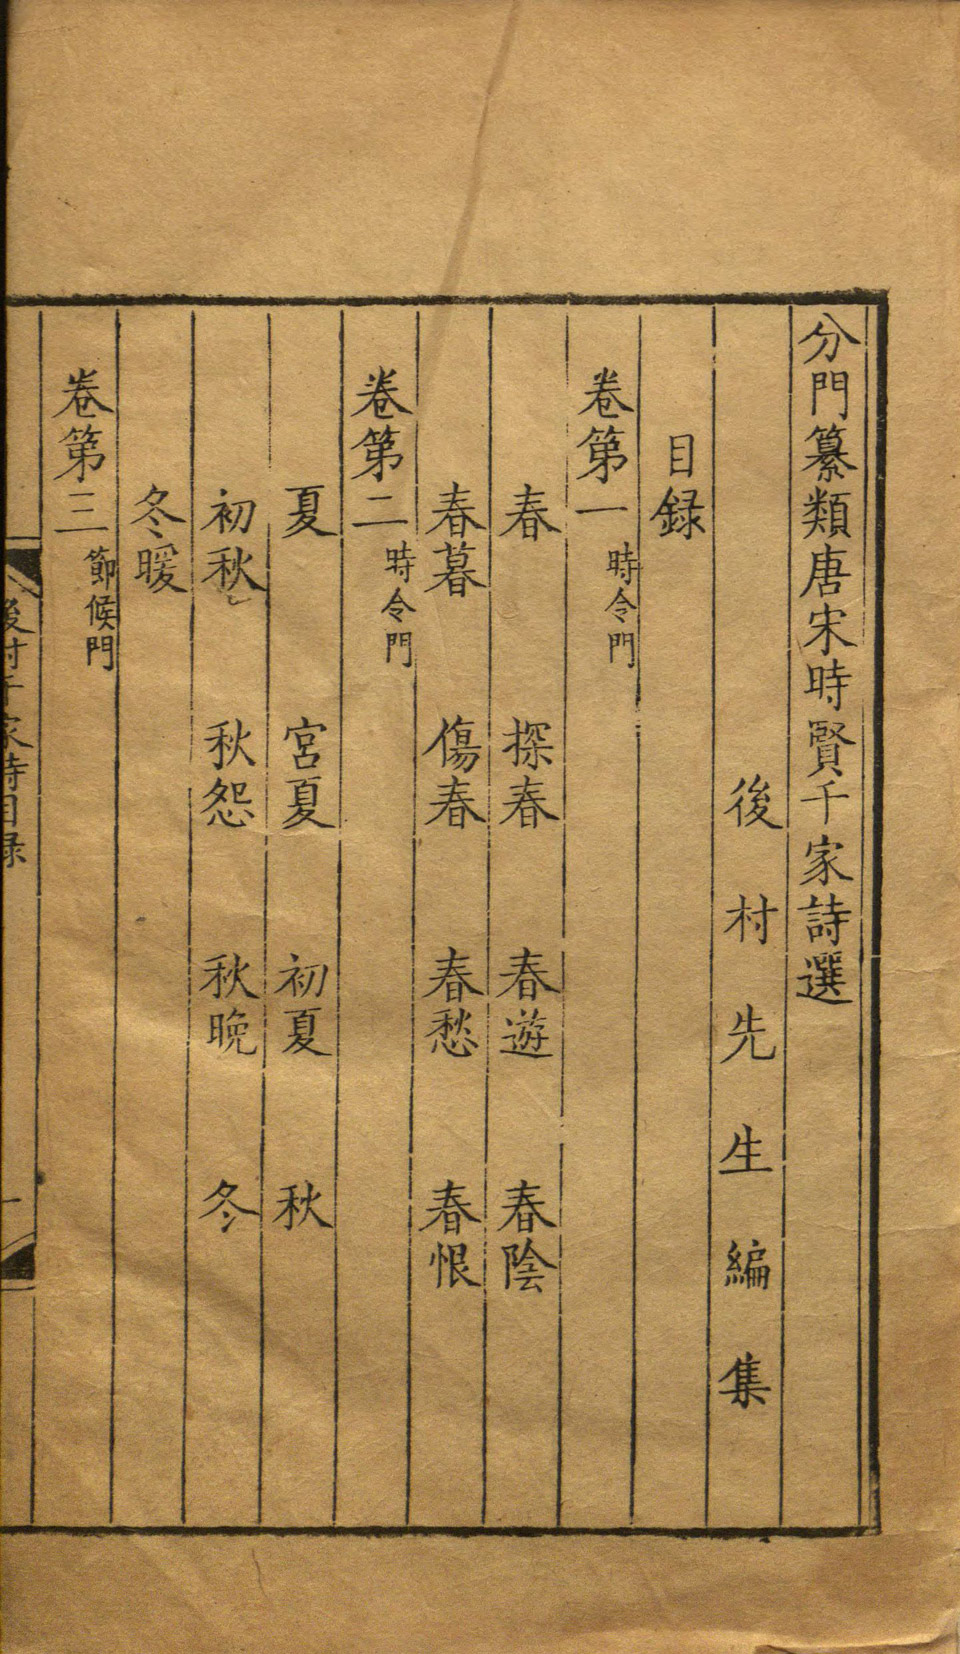 分門纂類唐宋時賢千家詩選
後村先生編集
目録
卷第一 時令門
春 探春 春遊 春陰
春暮 傷春 春愁 春恨
卷第二 時令門
夏 宮夏 初夏 秋
初秋 秋怨 秋晚 冬
冬暖
卷第三 節候門
後村千家詩目録
一